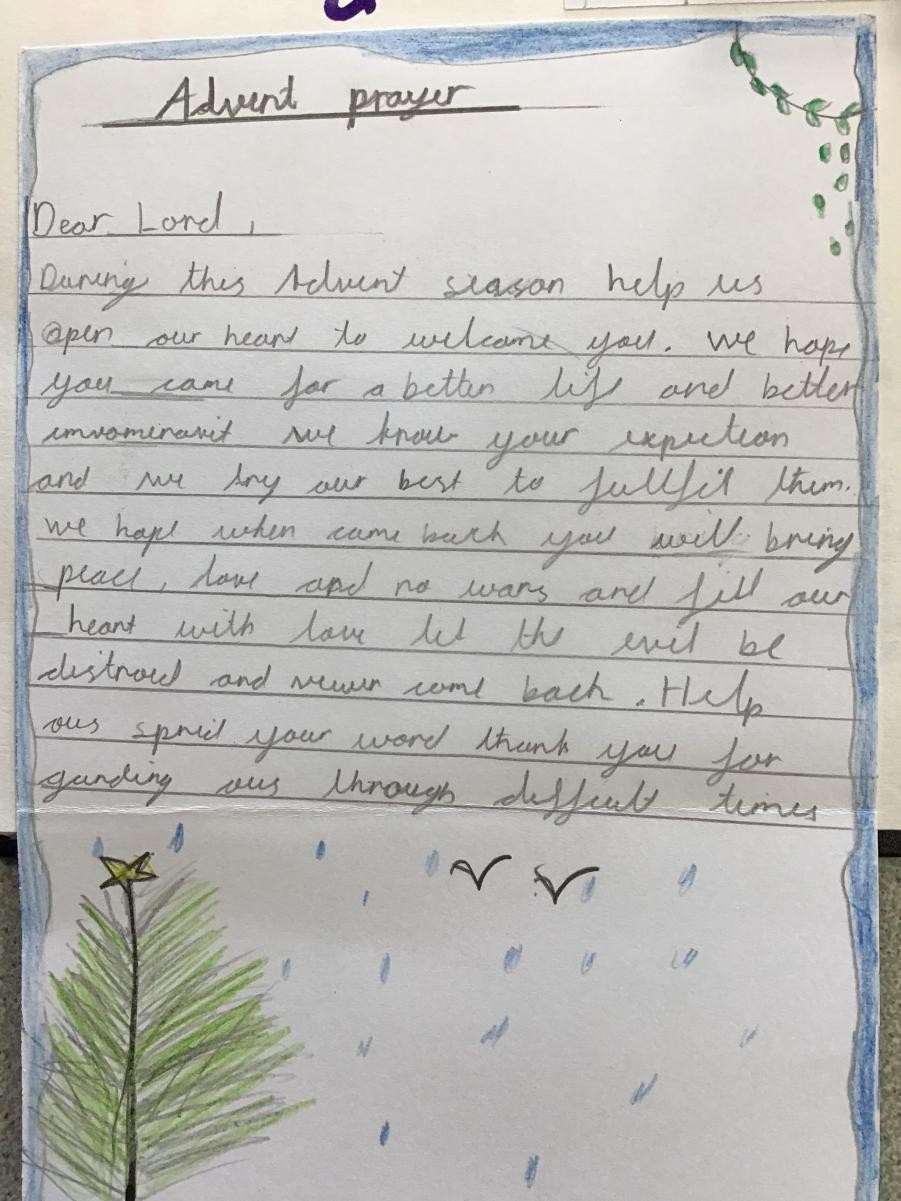 Advent prayer
Dear Lord,
During this Advent season help us
open our heart to welcome you. We hope
you came for a better life and better
imvominravit we know your expection
and we try our best to fullfil them.
We hope when came back you will bring
peace, love and no wars and fill our
heart with love let the evil be
distroied and never come back. Help
ous spried your word thank you for
garding ous through difficult times